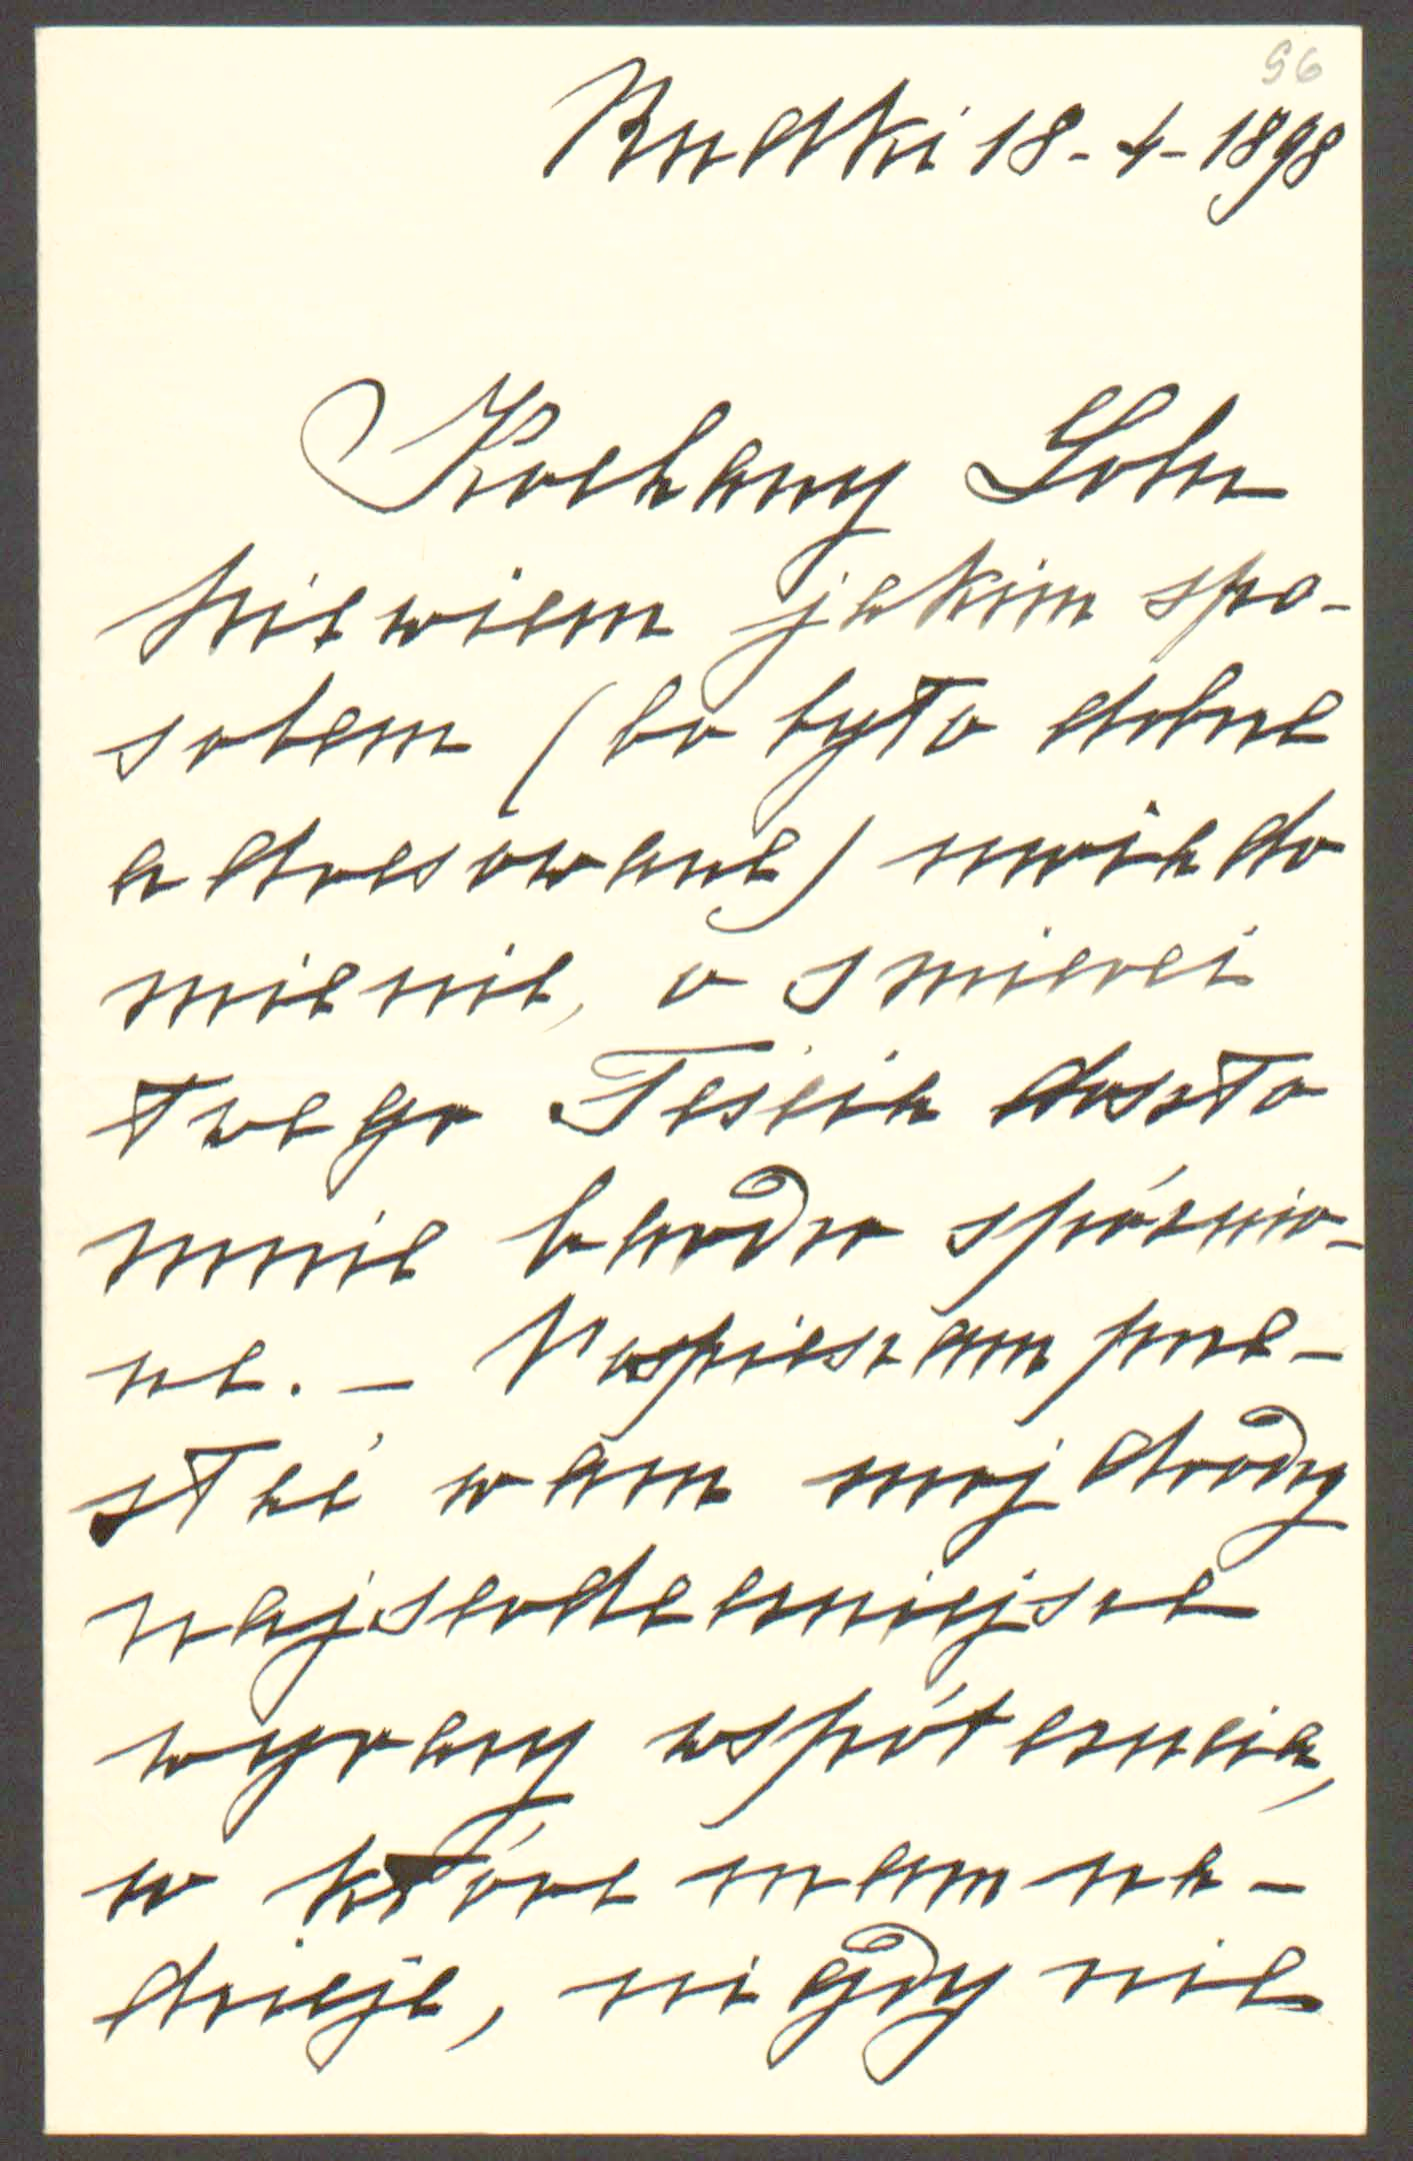 56
Rudki 18-4-1898
Kochany
Niewiem jakim spo-
sobem (bo było dobrze
adresowane) uwiado
mienie, o smierci
twego Teścia doszło
mnie bardzo spóźnio-
ne. – Pospieszam prze-
słać wam moj drogi
najserdeczniejsze
wyrazy współczucia,
w które mam na-
dzieje, nigdy nie